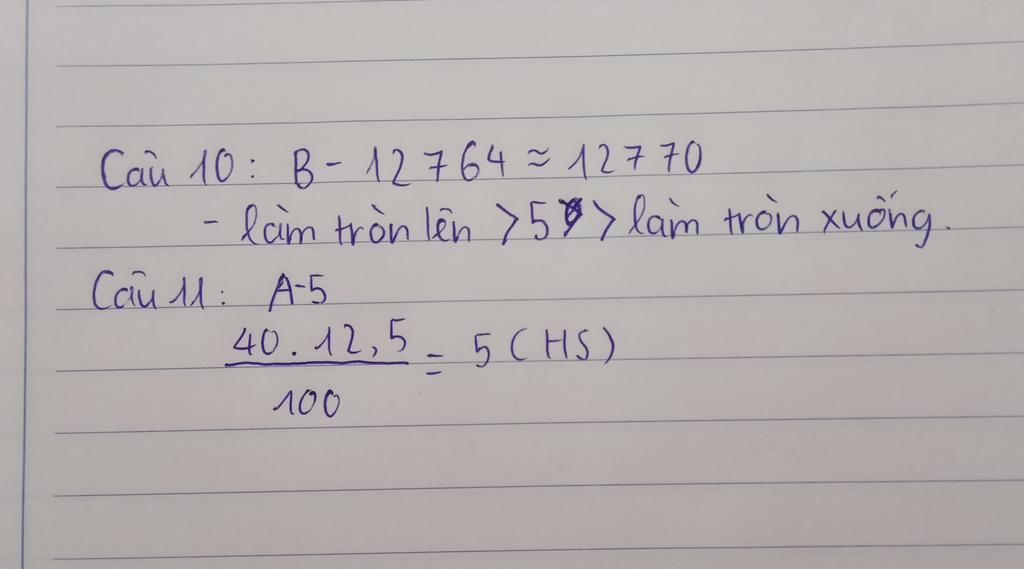 Câu 10: B - 12764 ≈ 12770
- làm tròn lên > 5 > làm tròn xuống.
Câu 11: A-5
40.12,5
= 5 (HS)
100